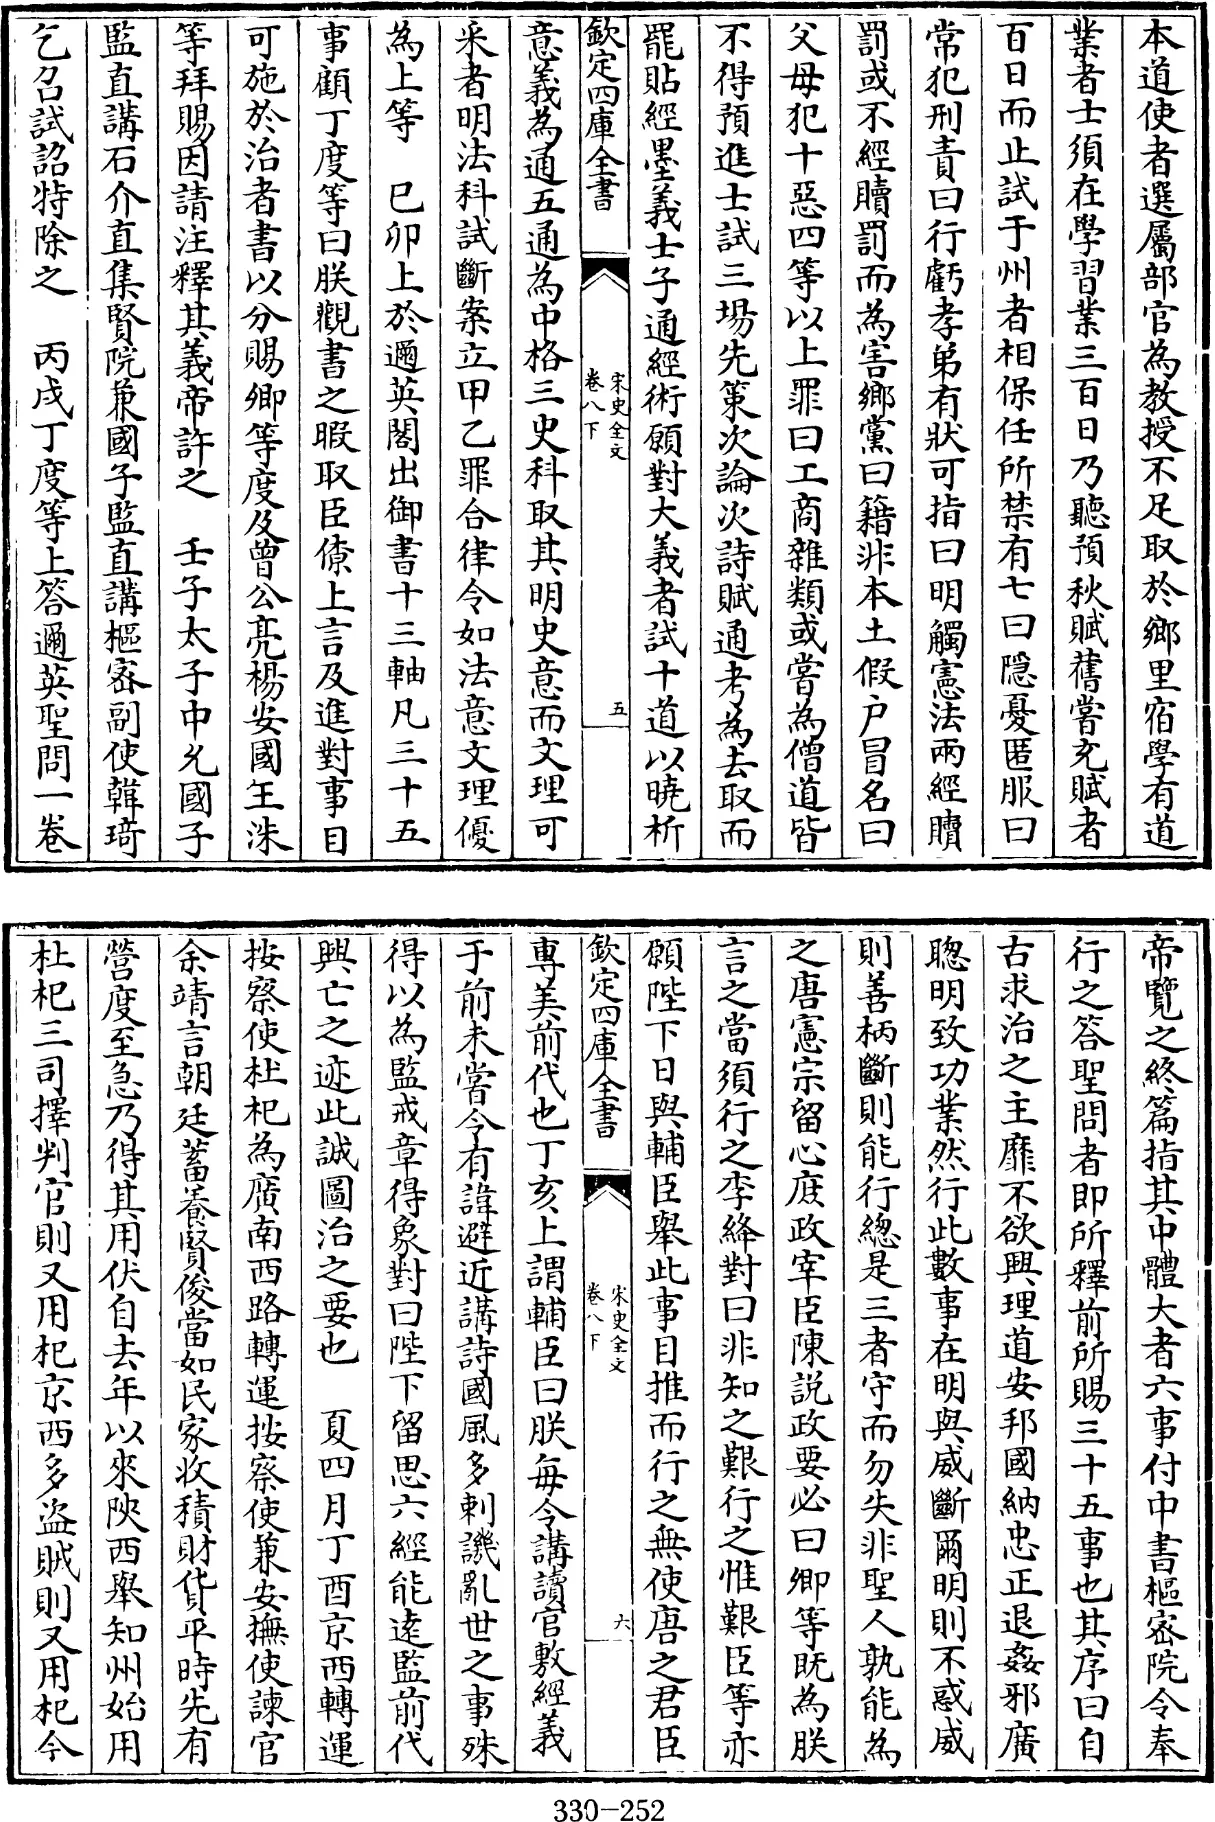 本道使者選屬部官為教授不足取於鄉里宿學有道
業者士須在學習業三百日乃聽預秋賦舊嘗充賦者
百日而止試于州者相保任所禁有七曰隱憂匿服曰
常犯刑責曰行虧孝弟有狀可指曰明觸憲法兩經贖
罰或不經贖罰而為害鄉黨曰籍非本土假户冒名曰
父母犯十惡四等以上罪曰工商雜類或嘗為僧道皆
不得預進士試三場先策次論次詩賦通考為去取而
罷貼經墨義士子通經術願對大義者試十道以曉析
欽定四庫全書
宋史全文
卷八下
五
意義為通五通為中格三史科取其明史意而文理可
采者明法科試斷案立甲乙罪合律令如法意文理優
為上等　已卯上於邇英閣出御書十三軸凡三十五
事顧丁度等曰朕觀書之暇取臣僚上言及進對事目
可施於治者書以分賜卿等度及曾公亮楊安國王洙
等拜賜因請注釋其義帝許之　壬子太子中允國子
監直講石介直集賢院兼國子監直講樞密副使韓琦
乞召試詔特除之　丙戌丁度等上答邇英聖問一卷
帝覽之終篇指其中體大者六事付中書樞密院令奉
行之答聖問者即所釋前所賜三十五事也其序曰自
古求治之主靡不欲興理道安邦國納忠正退姦邪廣
聰明致功業然行此數事在明與威斷爾明則不惑威
則善柄斷則能行總是三者守而勿失非聖人孰能為
之唐憲宗留心庻政宰臣陳說政要必曰卿等既為朕
言之當須行之李絳對曰非知之艱行之惟艱臣等亦
願陛下日與輔臣舉此事目推而行之無使唐之君臣
欽定四庫全書
宋史全文
卷八下
六
專美前代也丁亥上謂輔臣曰朕每令講讀官敷經義
于前未嘗令有諱避近講詩國風多刺譏亂世之事殊
得以為監戒章得象對曰陛下留思六經能逺監前代
興亡之迹此誠圖治之要也　夏四月丁酉京西轉運
按察使杜杞為廣南西路轉運按察使兼安撫使諫官
余靖言朝廷蓄養賢俊當如民家收積財貨平時先有
營度至急乃得其用伏自去年以來陜西舉知州始用
杜杞三司擇判官則又用杞京西多盗賊則又用杞今
330-252